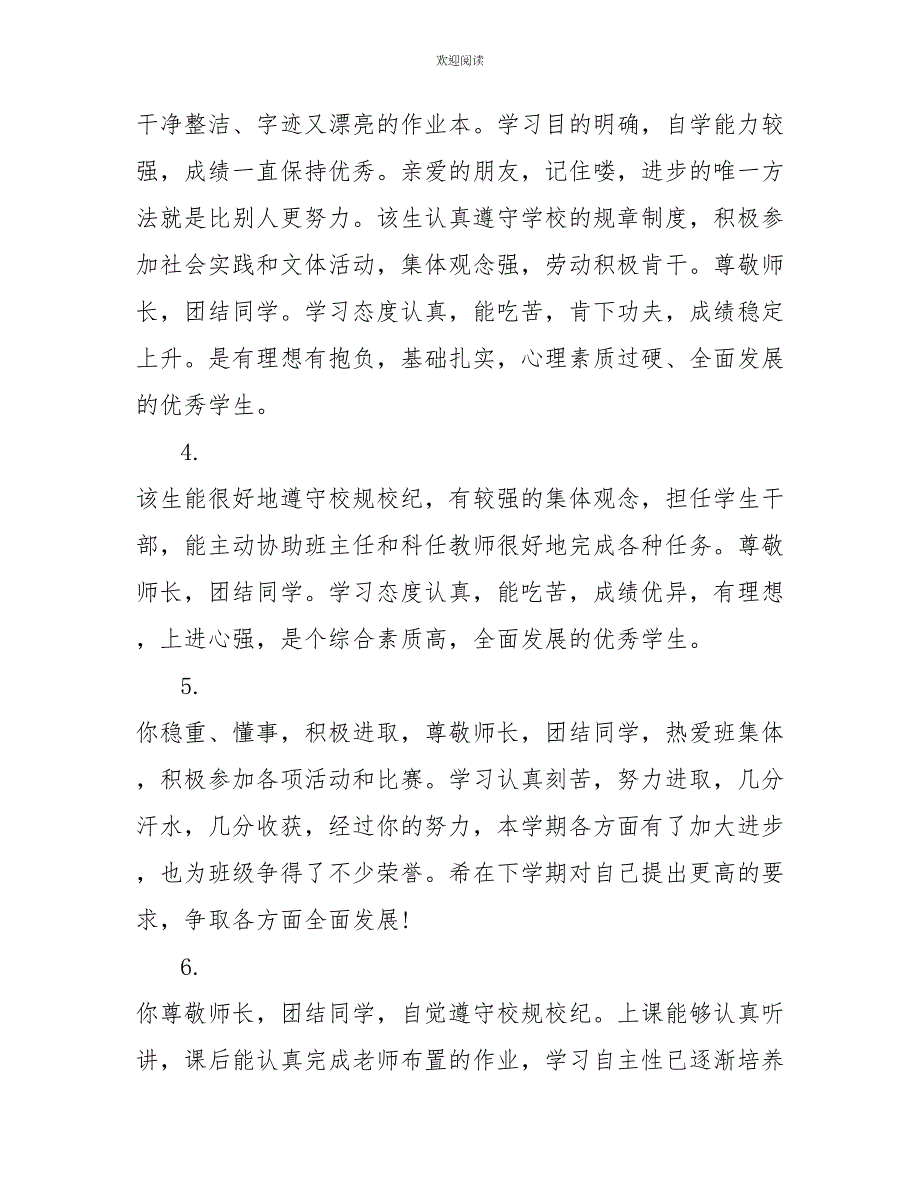 欢迎阅读
干净整洁、字迹又漂亮的作业本。学习目的明确，自学能力较
强，成绩一直保持优秀。亲爱的朋友，记住喽，进步的唯一方
法就是比别人更努力。该生认真遵守学校的规章制度，积极参
加社会实践和文体活动，集体观念强，劳动积极肯干。尊敬师
长，团结同学。学习态度认真，能吃苦，肯下功夫，成绩稳定
上升。是有理想有抱负，基础扎实，心理素质过硬、全面发展
的优秀学生。
4.
该生能很好地遵守校规校纪，有较强的集体观念，担任学生干
部，能主动协助班主任和科任教师很好地完成各种任务。尊敬
师长，团结同学。学习态度认真，能吃苦，成绩优异，有理想
，上进心强，是个综合素质高，全面发展的优秀学生。
5.
你稳重、懂事，积极进取，尊敬师长，团结同学，热爱班集体
，积极参加各项活动和比赛。学习认真刻苦，努力进取，几分
汗水，几分收获，经过你的努力，本学期各方面有了加大进步
，也为班级争得了不少荣誉。希在下学期对自己提出更高的要
求，争取各方面全面发展!
6.
你尊敬师长，团结同学，自觉遵守校规校纪。上课能够认真听
讲，课后能认真完成老师布置的作业，学习自主性已逐渐培养